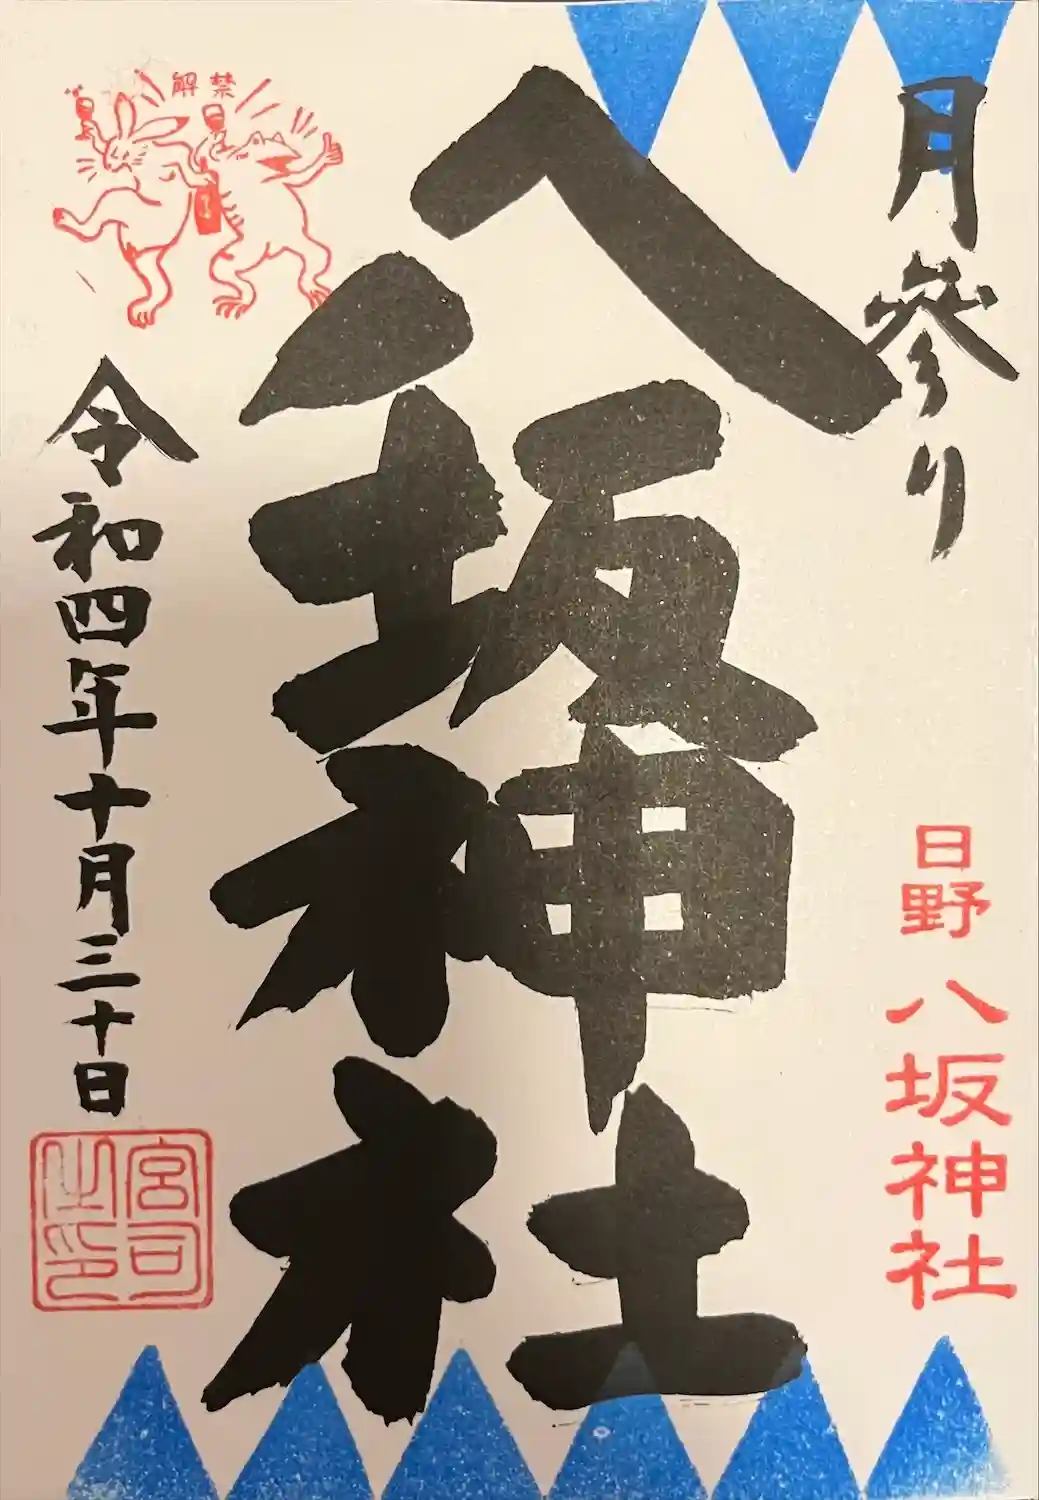 月参り
日野 八坂神社
八坂神社
解禁
令和四年十月三十日
宮司之印